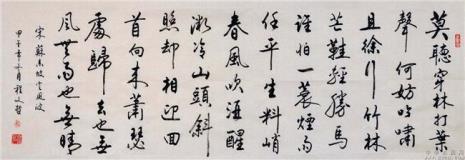 莫聽穿林打葉
聲何妨吟嘯
且徐行竹杖
芒鞋輕勝馬
誰怕一蓑煙雨
任平生料峭
春風吹酒醒
微冷山頭斜
照卻相迎回
首向來蕭瑟
處歸去也無
風雨也無晴
宋蘇東坡定風波
甲子年